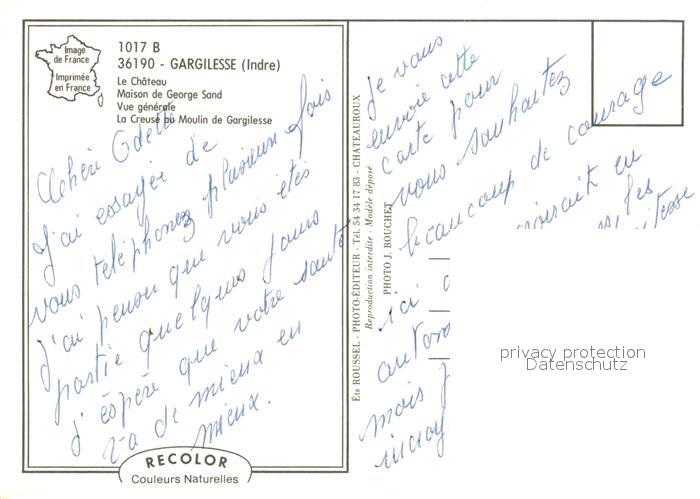 Image
de France
Imprimée
en France
1017 B
36190 - GARGILESSE (Indre)
Le Château
Maison de George Sand
Vue générale
La Creuse au Moulin de Gargilesse
Chéri Odette
J'ai essayée de
vous téléphonez plusieurs fois
j'ai penser que vous étés
partie quelques jours
j'éspère que votre santé
va de mieux en
mieux.
RECOLOR
Couleurs Naturelles
Éts ROUSSEL - PHOTO-ÉDITEUR - Tél. 54 34 17 83 - CHATEAUROUX
Reproduction interdite - Modèle déposé
PHOTO J. BOUCHET
je vous
envoie cette
carte pour
vous souhaitez
beaucoup de courage
en
les
ici
mois
privacy protection
Datenschutz